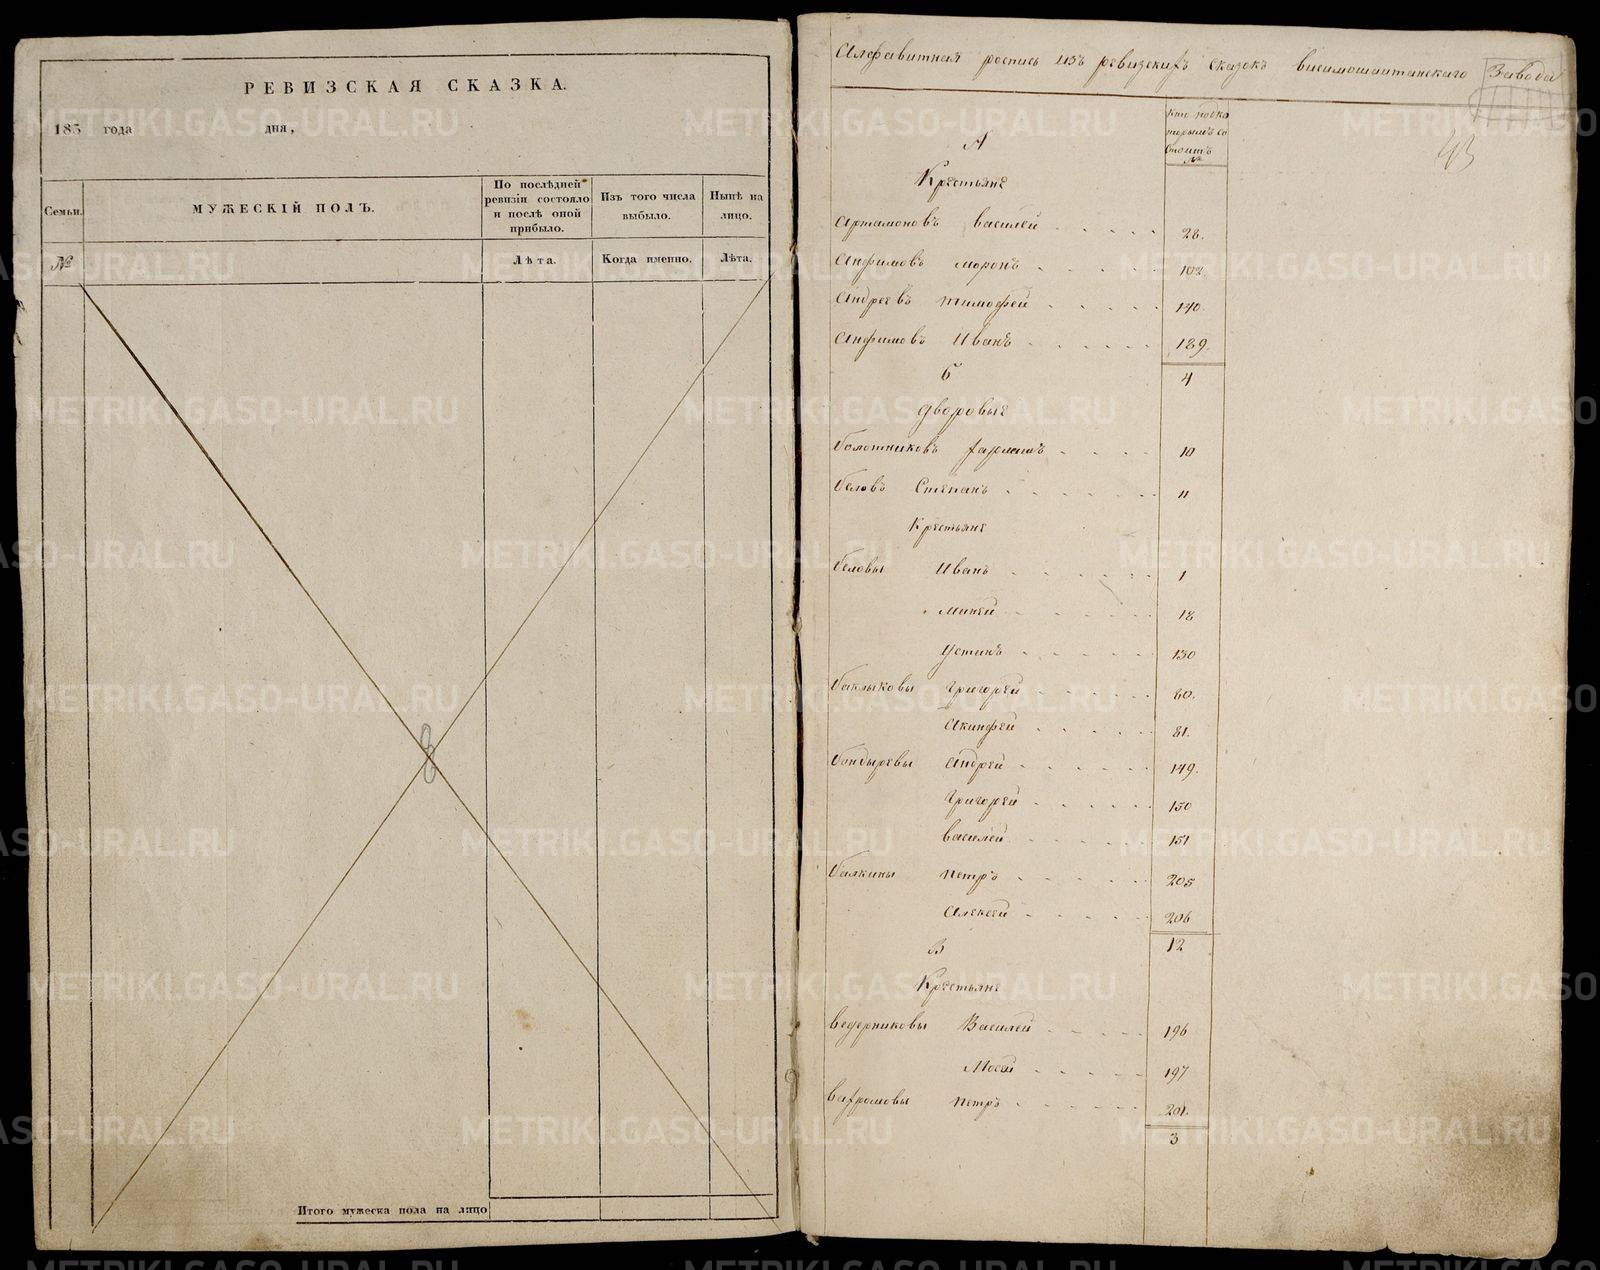 РЕВИЗСКАЯ СКАЗКА.
185 года дня,
Семьи.
МУЖЕСКІЙ ПОЛЪ.
По послѣдней ревизіи состояло и послѣ оной прибыло.
Изъ того числа выбыло.
Нынѣ на лицо.
№
Лѣта.
Когда именно.
Лѣта.
Итого мужеска пола на лицо
Алфавитная роспись изъ ревизскихъ сказокъ висимошайтанскаго Завода
43
кто подко
торымъ со
стоитъ
№
А
Крестьяне
Артамоновъ василей 28.
Анфимовъ миронъ 102.
Андреевъ тимофей 140.
Анфимовъ Иванъ 189.
4
Б
дворовые
болотниковъ 10
беловъ Степанъ 11
Крестьяне
беловы Иванъ 1
миней 18
Устинъ 130
баклыковы григорей 80.
Акинфей 81.
бондыревы Андрей 149.
григорей 150
василей 151
балкины петръ 205
Алексей 206
12
В
Крестьяне
ведерниковы Василей 196
Мосей 197
вахромовы петръ 201.
3
METRIKI.GASO-URAL.RU